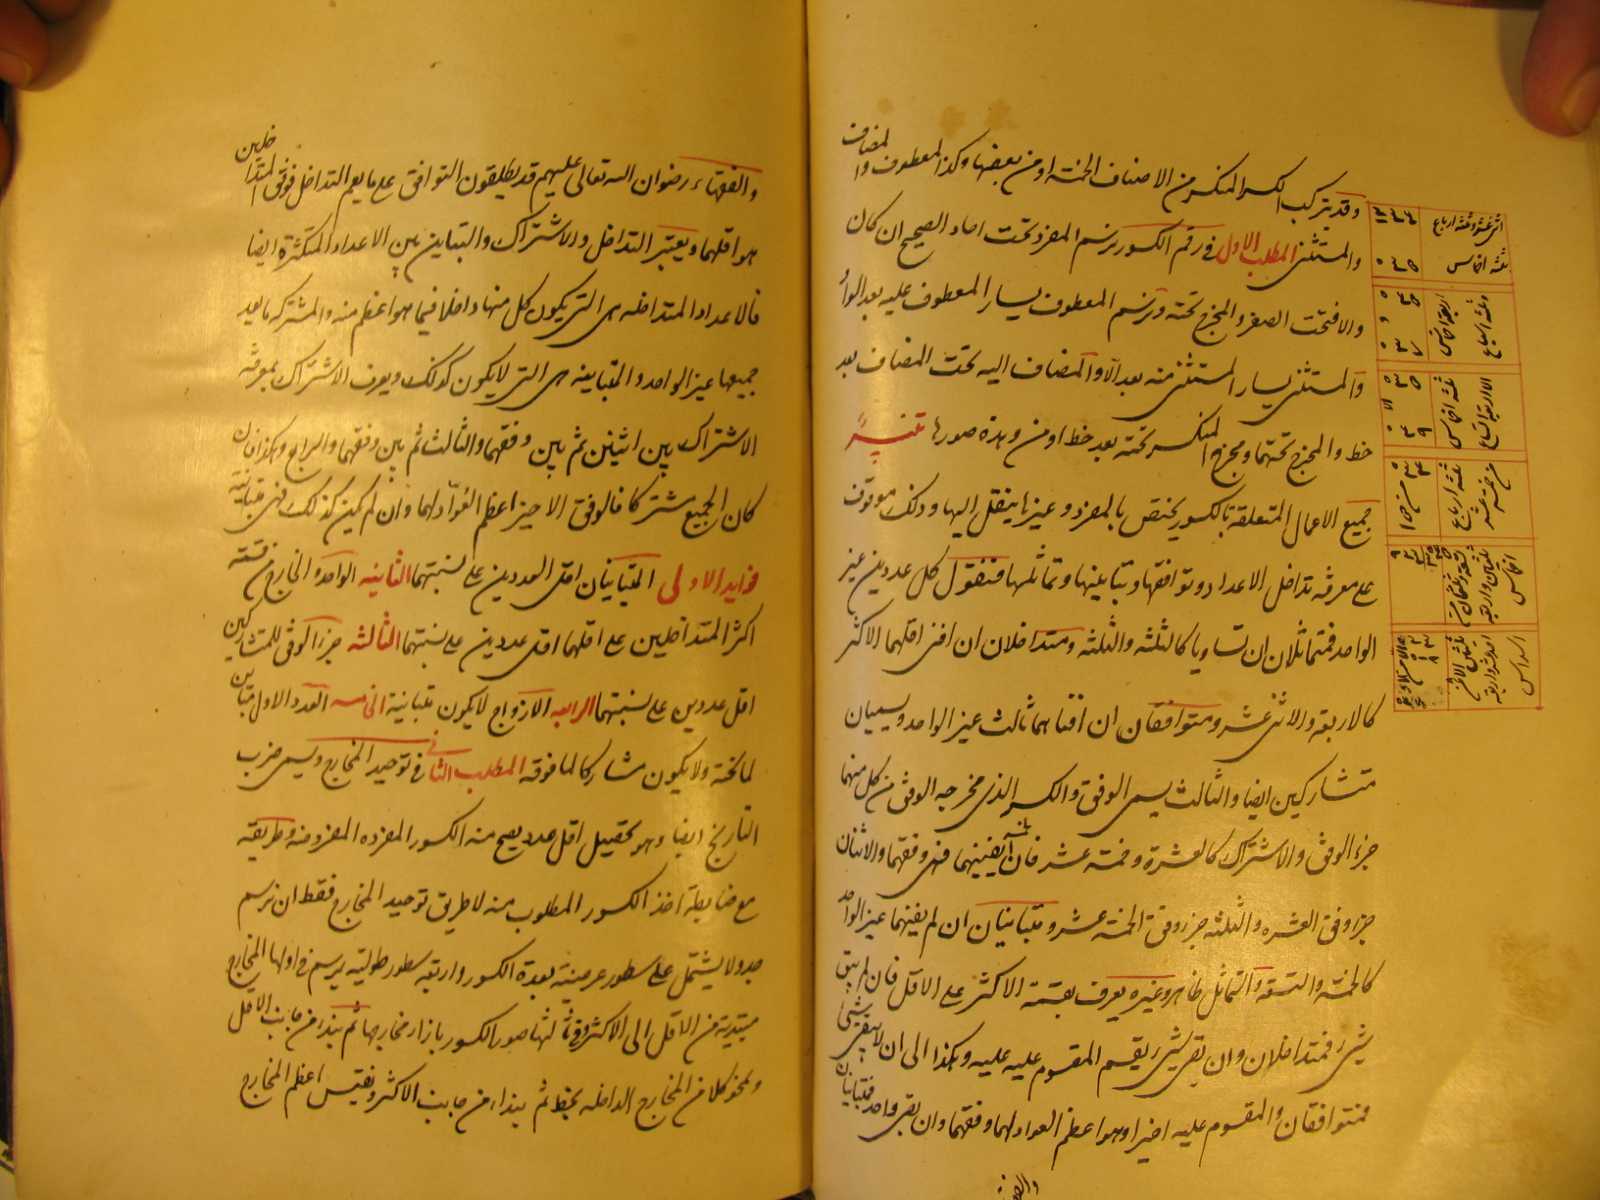 وقد يتركب الكسر المنكسر من الاصناف الخمسة او من بعضها وكذا المعطوف والمضاف
والمستثنى المطلب الاول في رقم الكسور يرسم المفرد تحت احاد الصحيح ان كان
والا فتحت الصفر والمخرج تحته ويرسم المعطوف يسار المعطوف عليه بعد الواو
والمستثنى يسار المستثنى منه بعد الا والمضاف اليه تحت المضاف بعد
خط والمخرج تحتهما ومخرج المنكسر تحته بعد خط او من وهذه صورها تنبيه
جميع الاعمال المتعلقة بالكسور يختص بالمفرد وغيرها ينقل اليها وذلك موقوف
على معرفة تداخل الاعداد وتوافقها وتباينها وتماثلها فنقول كل عددين غير
الواحد فمتماثلان ان تساويا كالثلثة والثلثة ومتداخلان ان افنى اقلهما الاكثر
كالاربعة والاثنى عشر ومتوافقان ان افناهما ثالث غير الواحد ويسميان
متشاركين ايضا والثالث يسمى الوفق والكسر الذى مخرجه الوفق من كل منهما
جزء الوفق والاشتراك كالعشرة وخمسة عشر فان يفنيهما فهى وفقهما والاثنان
جزء وفق العشرة والثلثة جزء وفق الخمسة عشر ومتباينان ان لم يفنهما غير الواحد
كالخمسة والتسعة والتماثل ظاهر وغيره يعرف بقسمة الاكثر على الاقل فان لم يبق
شىء فمتداخلان وان بقى شىء يقسم المقسوم عليه عليه وهكذا الى ان لا يبقى شىء
فمتوافقان والمقسوم عليه اخيرا وهو اعظم العواد لهما وفقهما وان بقى واحد فمتباينان
اثنى عشر وثلثة ارباع
ثلثة اخماس
اربعة اخماس
وثلثة اسباع
ثلثة اخماس
الا اربعة اتساع
ثلثة ارباع
من خمسة عشر
اخماس
اسداس
والفقهاء رضوان الله تعالى عليهم قد يطلقون التوافق على ما يعم التداخل فوفق المتداخلين
هو اقلهما ويعتبر التداخل والاشتراك والتباين بين الاعداد المتكثرة ايضا
فالاعداد المتداخلة هى التى يكون كل منها داخلا فيما هو اعظم منه والمشتركة ما يعد
جميعها غير الواحد والمتباينة هى التى لا يكون كذلك ويعرف الاشتراك بمعرفة
الاشتراك بين اثنين ثم بين وفقهما والثالث ثم بين وفقهما والرابع وهكذا فان
كان الجميع مشتركا فالوفق الاخير اعظم العواد لهما وان لم يكن كذلك فهى متباينة
فوايد الاولى المتباينان اقل العددين على نسبتهما الثانية الواحد والخارج من قسمة
اكثر المتداخلين على اقلهما اقل عددين على نسبتهما الثالثة جزء الوفق للمتشاركين
اقل عددين على نسبتهما الرابعة الازواج لا يكون متباينة الخامسة العدد الاول مباين
لما تحته ولا يكون مشاركا لما فوقه المطلب الثانى فى توحيد المخارج ويسمى ضرب
التاريخ ايضا وهو تحصيل اقل عدد يصح منه الكسور المفردة المفروضة وطريقه
مع ضابطة اخذ الكسور المطلوب منه لا طريق توحيد المخارج فقط ان نرسم
جدولا يشتمل على سطور عرضية بعدة الكسور واربعة سطور طولية يرسم فى اولها المخارج
مبتدية من الاقل الى الاكثر وفى ثالثها صور الكسور بازاء مخارجها ثم يبتدء من جانب الاقل
ونمحو كلا من المخارج الداخلة بخط ثم يبتداء من جانب الاكثر ونقيس اعظم المخارج